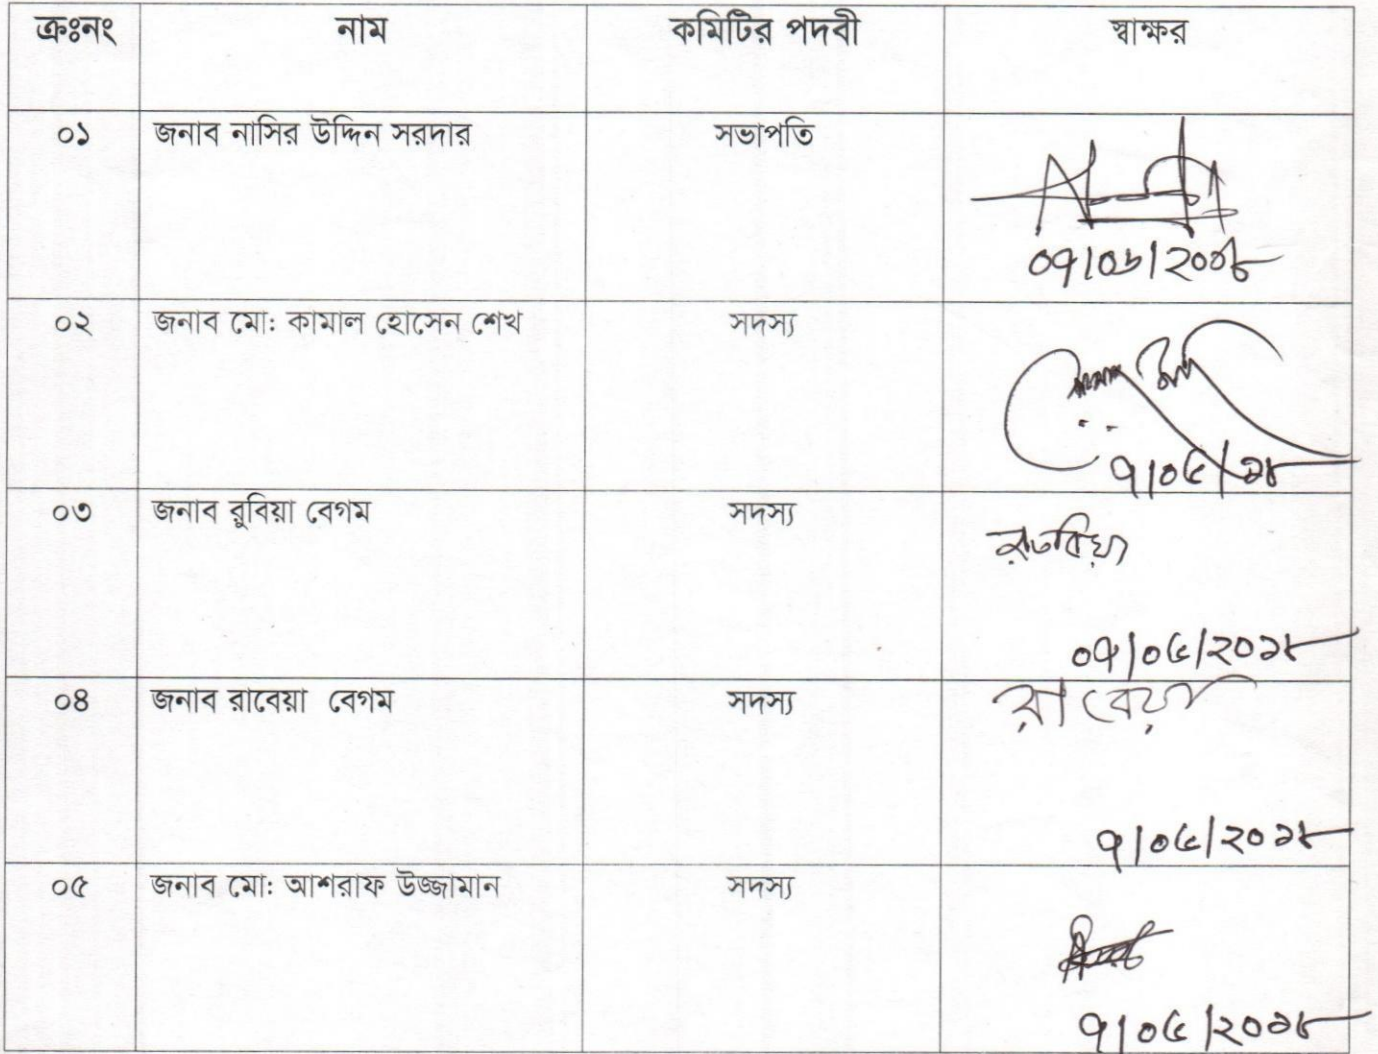 ক্রঃনং নাম কমিটির পদবী স্বাক্ষর
০১ জনাব নাসির উদ্দিন সরদার সভাপতি
০২ জনাব মো: কামাল হোসেন শেখ সদস্য
৭/০৫/১৮
০৩ জনাব রুবিয়া বেগম সদস্য
০৭/০৫/২০১৮
০৪ জনাব রাবেয়া বেগম সদস্য
রাবেয়া
৭/০৫/২০১৮
০৫ জনাব মো: আশরাফ উজ্জামান সদস্য
৭/০৫/২০১৮